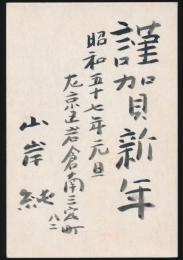 謹賀新年
昭和五十七年元旦
左京区岩倉南三宅町
山岸 純
八二